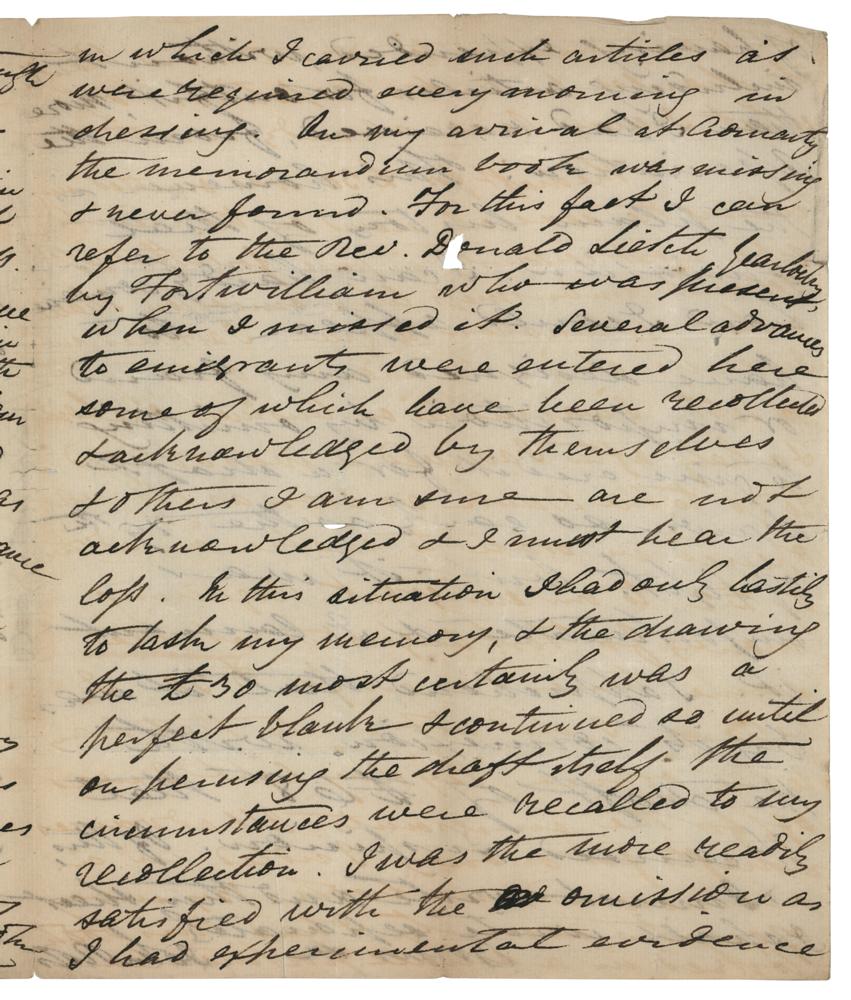 in which I carried such articles as
were required every morning in
dressing. On my arrival at Cromarty
the memorandum book was missing
& never found. For this fact I can
refer to the Rev. Donald
by Fortwilliam who was present,
when I missed it. Several advances
to emigrants were entered here
some of which have been recollected
& acknowledged by themselves
& others I am sure are not
acknowledged & I must bear the
loss. In this situation I had only hastily
to task my memory, & the drawing
the £30 most certainly was a
perfect blank & continued so until
on perusing the draft itself the
circumstances were recalled to my
recollection. I was the more readily
satisfied with the omission as
I had experimental evidence